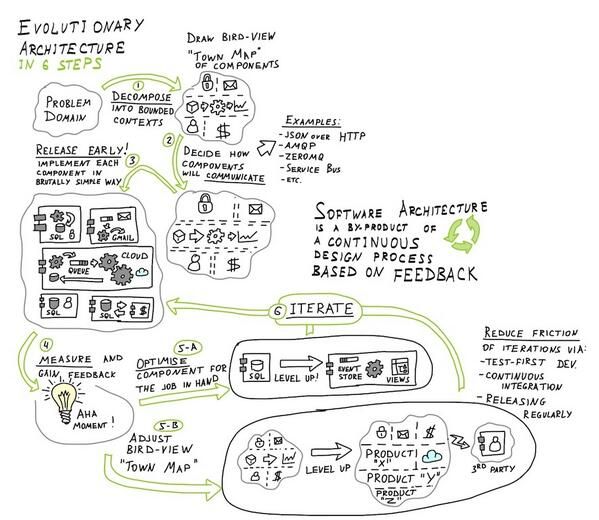 EVOLUTIONARY
ARCHITECTURE
IN 6 STEPS
DRAW BIRD-VIEW
"TOWN MAP"
OF COMPONENTS
PROBLEM
DOMAIN
1
DECOMPOSE
INTO BOUNDED
CONTEXTS
$
2
DECIDE HOW
COMPONENTS
WILL COMMUNICATE
EXAMPLES:
- JSON OVER HTTP
- AMQP
- ZEROMQ
- SERVICE BUS
- ETC.
RELEASE EARLY!
IMPLEMENT EACH
COMPONENT IN
BRUTALLY SIMPLE WAY
3
$
SQL
GMAIL
CLOUD
QUEUE
SQL
SQL
$
SOFTWARE ARCHITECTURE
IS A BY-PRODUCT OF
A CONTINUOUS
DESIGN PROCESS
BASED ON FEEDBACK
6 ITERATE
4
MEASURE AND
GAIN FEEDBACK
AHA
MOMENT!
5-A
OPTIMISE
COMPONENT FOR
THE JOB IN HAND
SQL
LEVEL UP!
EVENT
STORE
VIEWS
REDUCE FRICTION
OF ITERATIONS VIA:
- TEST-FIRST DEV.
- CONTINUOUS
INTEGRATION
- RELEASING
REGULARLY
5-B
ADJUST
BIRD-VIEW
"TOWN MAP"
$
LEVEL UP
$
PRODUCT
"X"
PRODUCT "Y"
PRODUCT
"Z"
3RD PARTY